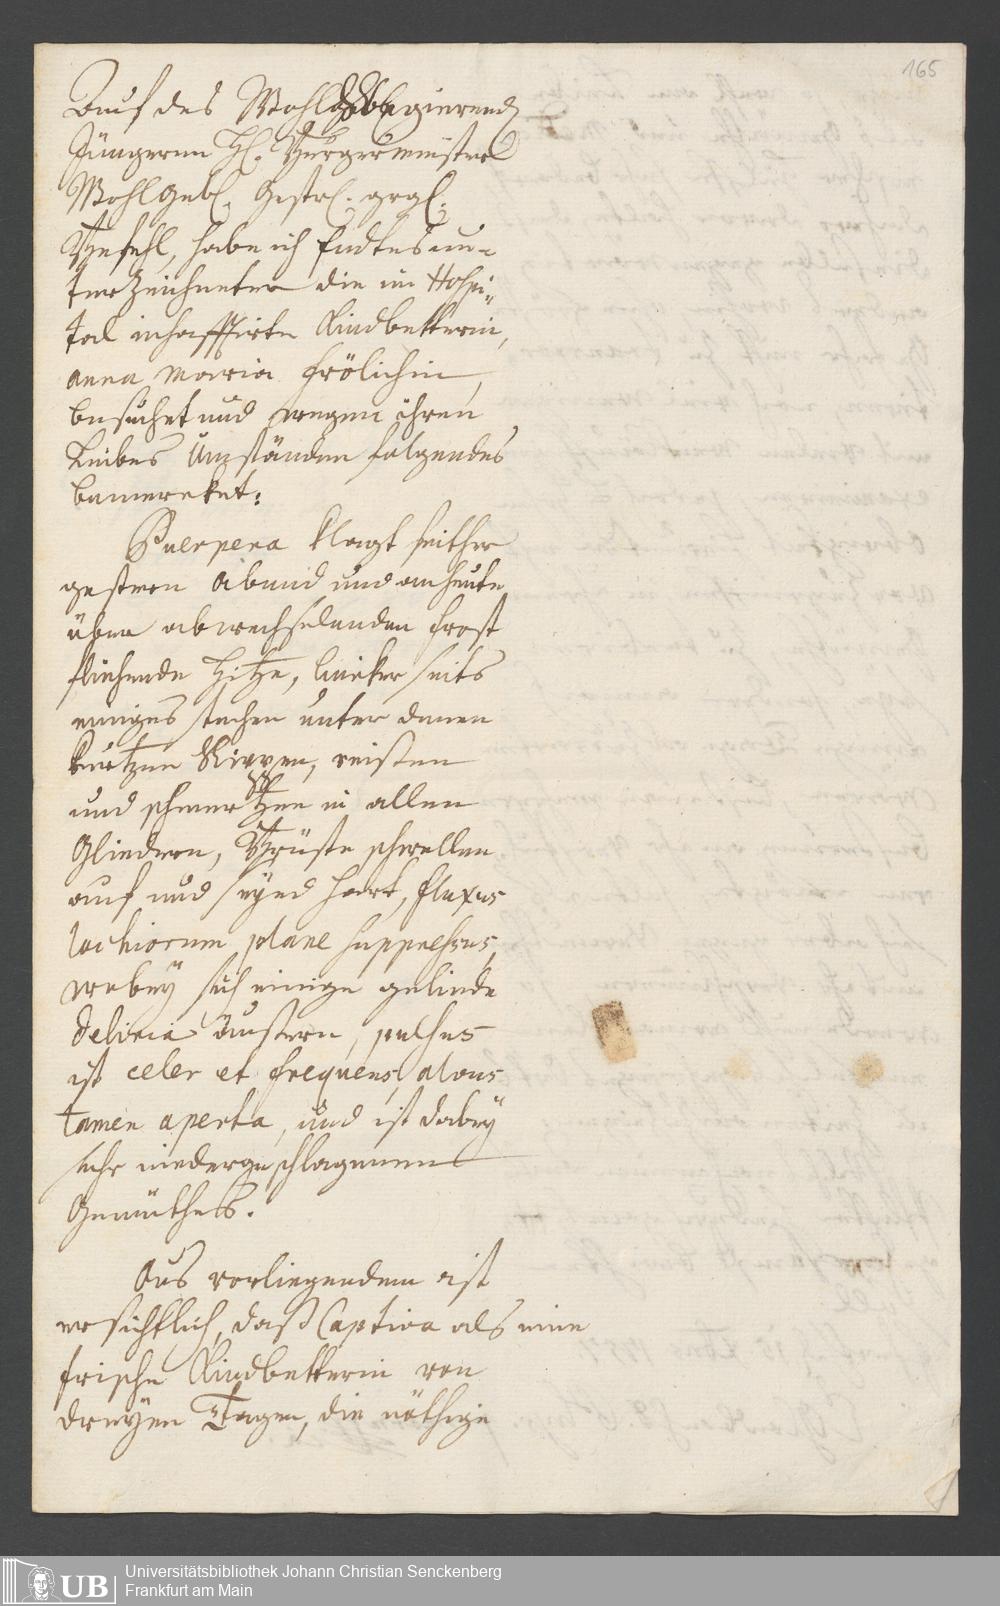 165
Auf des Wohlregierend
Jüngeren H. Burgermeisters
WohlGeb. Gestr. 
Befehl, habe ich Endtes un-
terzeichneter die im Hospi-
tal inhafftirte Kindbetterin,
anna maria Frölichin,
besuchet und wegen ihren
Leibes Umständen folgendes
bemereket:
Puerpera klagt seither
gestern abend und anheute
über abwechselenden Frost
fliehende Hitze, lincker seits
einiges stechen unter denen
kurtzen Rippen, reisten
und schmertzen in allen
Gliedern, Brüste schwellen
auf und seynd hart, fluxus
lochiorum plane suppressus,
wobey sich einige gelinde
deliria äustern, pulsus
ist celer et frequens, alvus
tamen aperta, und ist dabey
sehr niedergeschlagenen
Gemüthes.
Aus vorliegendem ist
ersichtlich, daß Captiva als eine
frische Kindbetterin von
dreyen Tagen, die nöthige
UB
Universitätsbibliothek Johann Christian Senckenberg
Frankfurt am Main